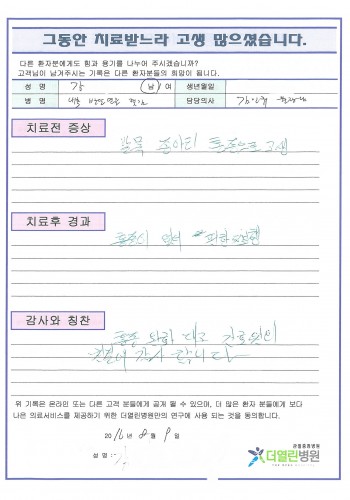 그동안 치료받느라 고생 많으셨습니다.
다른 환자분에게도 힘과 용기를 나누어 주시겠습니까?
고객님이 남겨주시는 기록은 다른 환자분들의 희망이 됩니다.
성 명 강 (남) 여 생년월일
병 명 담당의사
치료전 증상
발목 종아리 통증으로 고생
치료후 경과
통증이 없어
감사와 칭찬
통증 완화 되고 간호원의
친절에 감사 합니다
위 기록은 온라인 또는 다른 고객 분들에게 공개 될 수 있으며, 더 많은 환자 분들에게 보다
나은 의료서비스를 제공하기 위한 더열린병원만의 연구에 사용 되는 것을 동의합니다.
2016년 8월 9일
성 명 :
관절중점병원
더열린병원